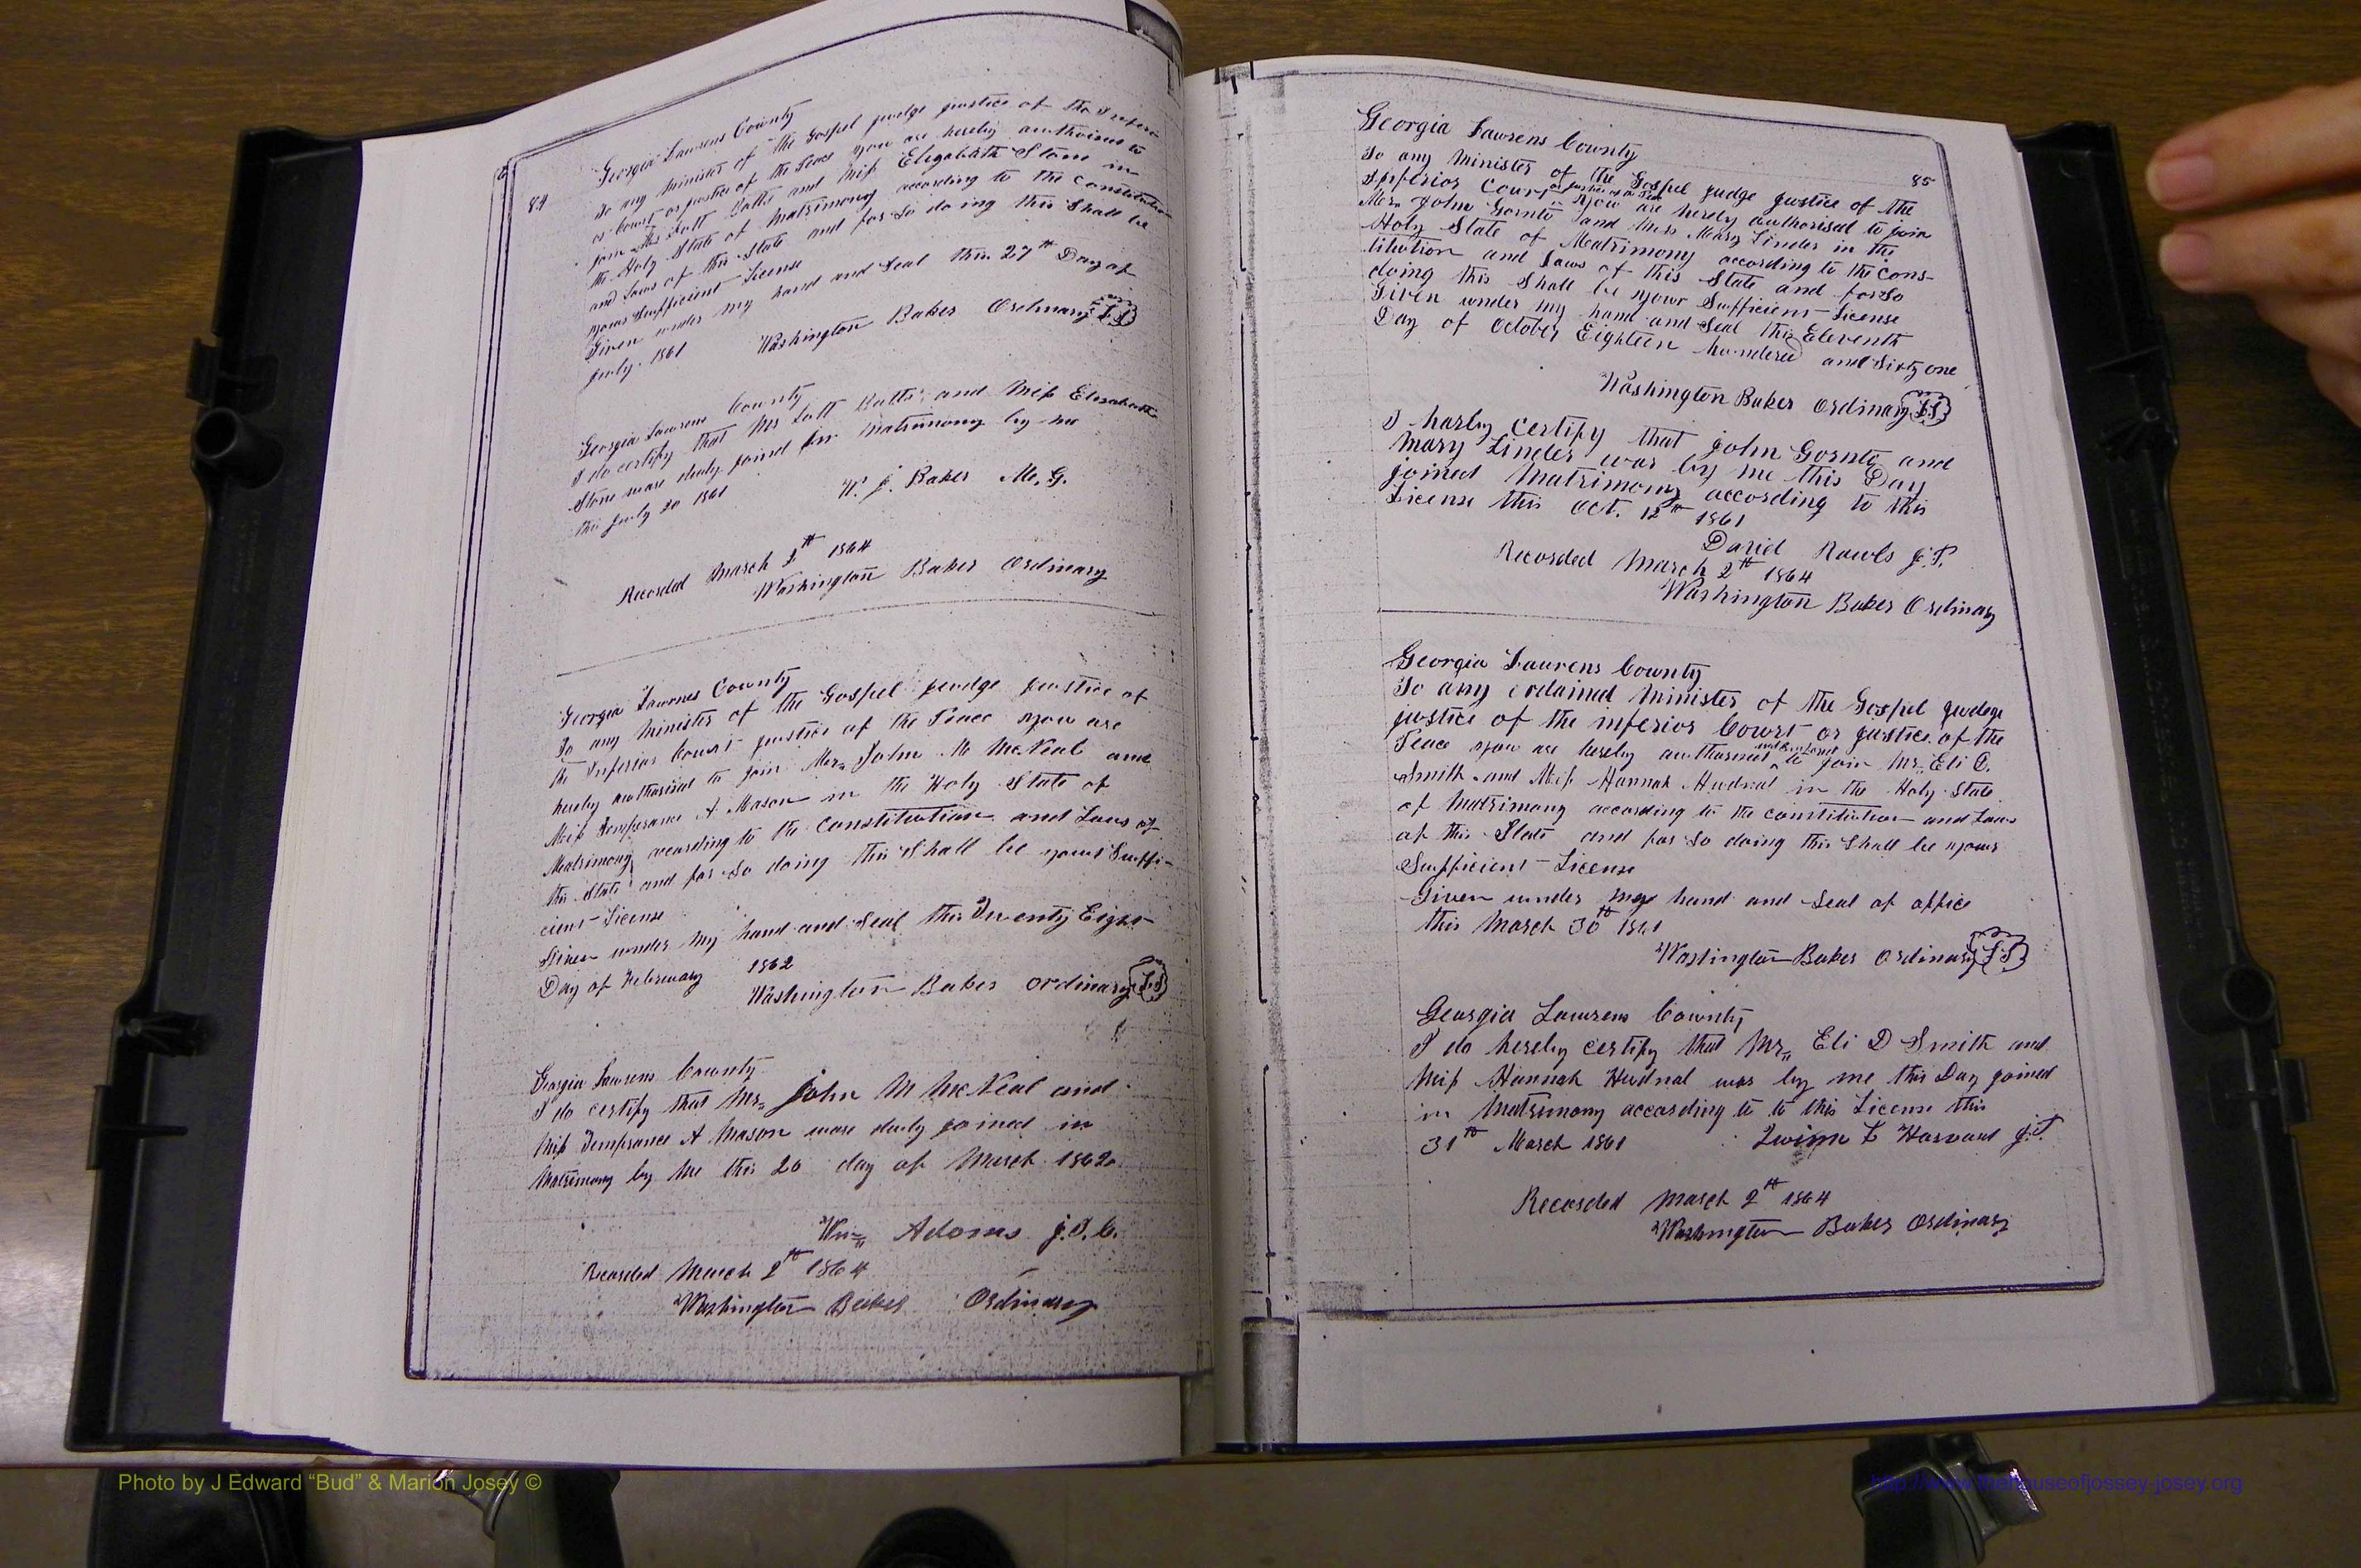 84
Georgia Laurens County
To any Minister of the Gospel judge justice of the Inferi-
or Court or justice of the Peace you are hereby authorised to
join Mr Lott Batts and Miss Elizabeth Stone in
the Holy State of Matrimony according to the Constitution
and Laws of this State and for so doing this Shall be
your Sufficient License
Given under my hand and Seal this 27th Day of
July 1861
Washington Baker Ordinary L.S
Georgia Laurens County
I do certify that Mr Lott Batts and Miss Elizabeth
Stone ware duly joined in matrimony by me
this July 20 1861
W. J. Baker M.G.
Recorded March 2th 1864
Washington Baker Ordinary
Georgia Laurens County
To any Minister of the Gospel judge justice of
the Inferior Court justice of the Peace you are
hereby authorised to join Mr John M McNeal and
Miss Temprance A Mason in the Holy State of
Matrimony according to the constitution and Laws of
this State and for so doing this Shall be your Suffi-
cient License
Given under my hand and Seal this Twenty Eight
Day of February 1862
Washington Baker ordinary L.S
Georgia Laurens County
I do certify that Mr John M McNeal and
Miss Temprance A Mason ware duly joined in
Matrimony by me this 20 day of March 1862
Wm Adams J.I.C.
Recorded March 2th 1864
Washington Baker Ordinary
85
Georgia Laurens County
To any Minister of the Gospel judge justice of the
Inferior Court or justice of the Peace you are hereby authorised to join
Mr John Gornto and Miss Mary Linder in the
Holy State of Matrimony according to the Cons-
titution and Laws of this State and for So
doing this Shall be your Sufficient License
Given under my hand and Seal this Eleventh
Day of October Eighteen hundered and Sixty one
Washington Baker Ordinary L.S
I harby certify that john Gornto and
Mary Linder was by me this Day
joined Matrimony according to this
License this Oct. 12th 1861
Daniel Rawls J.P.
Recorded March 2th 1864
Washington Baker Ordinary
Georgia Laurens County
To any ordained Minister of the Gospel judge
justice of the inferior Court or justice of the
Peace you are hereby authorised to join Mr Eli D.
Smith and Miss Hannah Hudnal in the Holy State
of Matrimony according to the constitution and Laws
of this State and for so doing this Shall be your
Sufficient License
Given under my hand and Seal of office
this March 30th 1861
Washington Baker Ordinary L.S
Georgia Laurens County
I do hereby certify that Mr Eli D Smith and
Miss Hannah Hudnal was by me this Day joined
in Matrimony according to to this License this
31th March 1861 Harvard J.P
Recorded March 2th 1864
Washington Baker Ordinary
Photo by J Edward “Bud” & Marion Josey ©
http://www.thehouseofjossey-josey.org